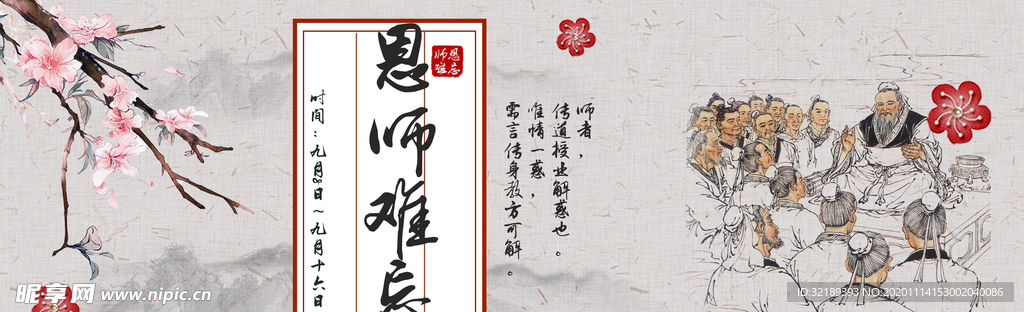 恩师难忘
恩师难忘
时间：九月8日～九月十六日
师者，
传道授业解惑也。
唯情一惑，
需言传身教方可解。
昵享网 www.nipic.cn
ID:32189393 NO:20201114153002040086